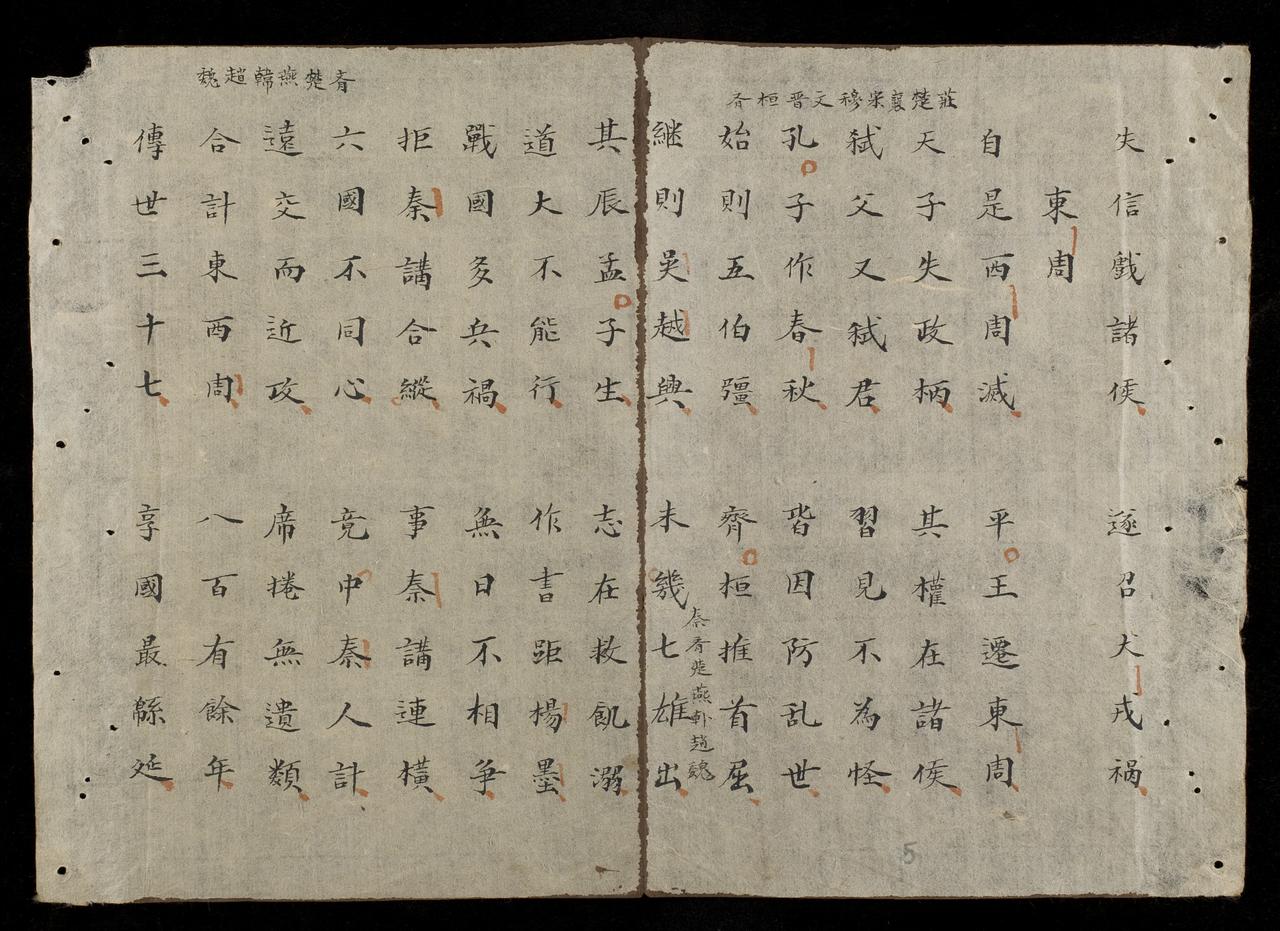 失信戲諸侯 遂召犬戎禍
東周
自是西周滅 平王遷東周
天子失政柄 其權在諸侯
弑父又弑君 習見不為怪
孔子作春秋 皆因防乱世
始則五伯彊 齊桓推首屈
齊桓晋文穆宋襄楚莊
継則吳越興 未幾七雄出
秦齐楚燕趙魏
其辰孟子生 志在救飢溺
道大不能行 作書距楊墨
戰國多兵禍 無日不相爭
拒秦講合縱 事秦講連橫
六國不同心 竟中秦人計
遠交而近攻 席捲無遺類
合計東西周 八百有餘年
傳世三十七 享國最緜延
魏趙韓燕楚齐
5